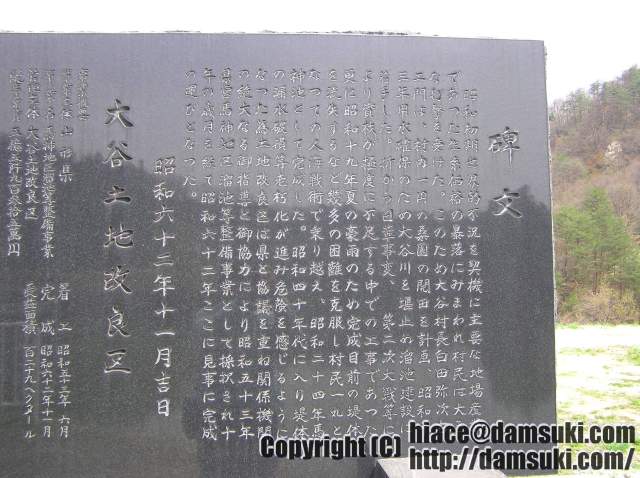 碑文
昭和初期世界的不況を契機に主要な地場産
であった生糸価格の暴落にみまわれ村民は大
な打撃を受けた。このため大谷村長白田弥次
エ門は、村内一円の桑園の開田を計画、昭和
三年用水確保のため大谷川を堰止め溜池建設に
着手した。折から日華事変、第二次大戦等に
より資材が極度に不足する中での工事であった
更に昭和十九年夏の豪雨のため完成目前の堤体
を流失するなど幾多の困難を克服し村民一丸と
なっての人海戦術で乗り越え、昭和二十四年馬
神池として完成した。昭和四十年代に入り堤体
の漏水破損等老朽化が進み危険を感じるように
なった為土地改良区は県と協議を重ね関係機関
の絶大なる御指導と御協力により昭和五十三年
県営馬神地区溜池等整備事業として採択され十
年の歳月を経て昭和六十二年ここに見事に完成
の運びとなった。
昭和六十二年十一月吉日
大谷土地改良区
山形県 着工 昭和五十三年六月
馬神地区溜池等整備事業 完成 昭和六十二年十一月
大谷土地改良区 受益面積 百二十九ヘクタール
Copyright (C) hiace@damsuki.com
http://damsuki.com/